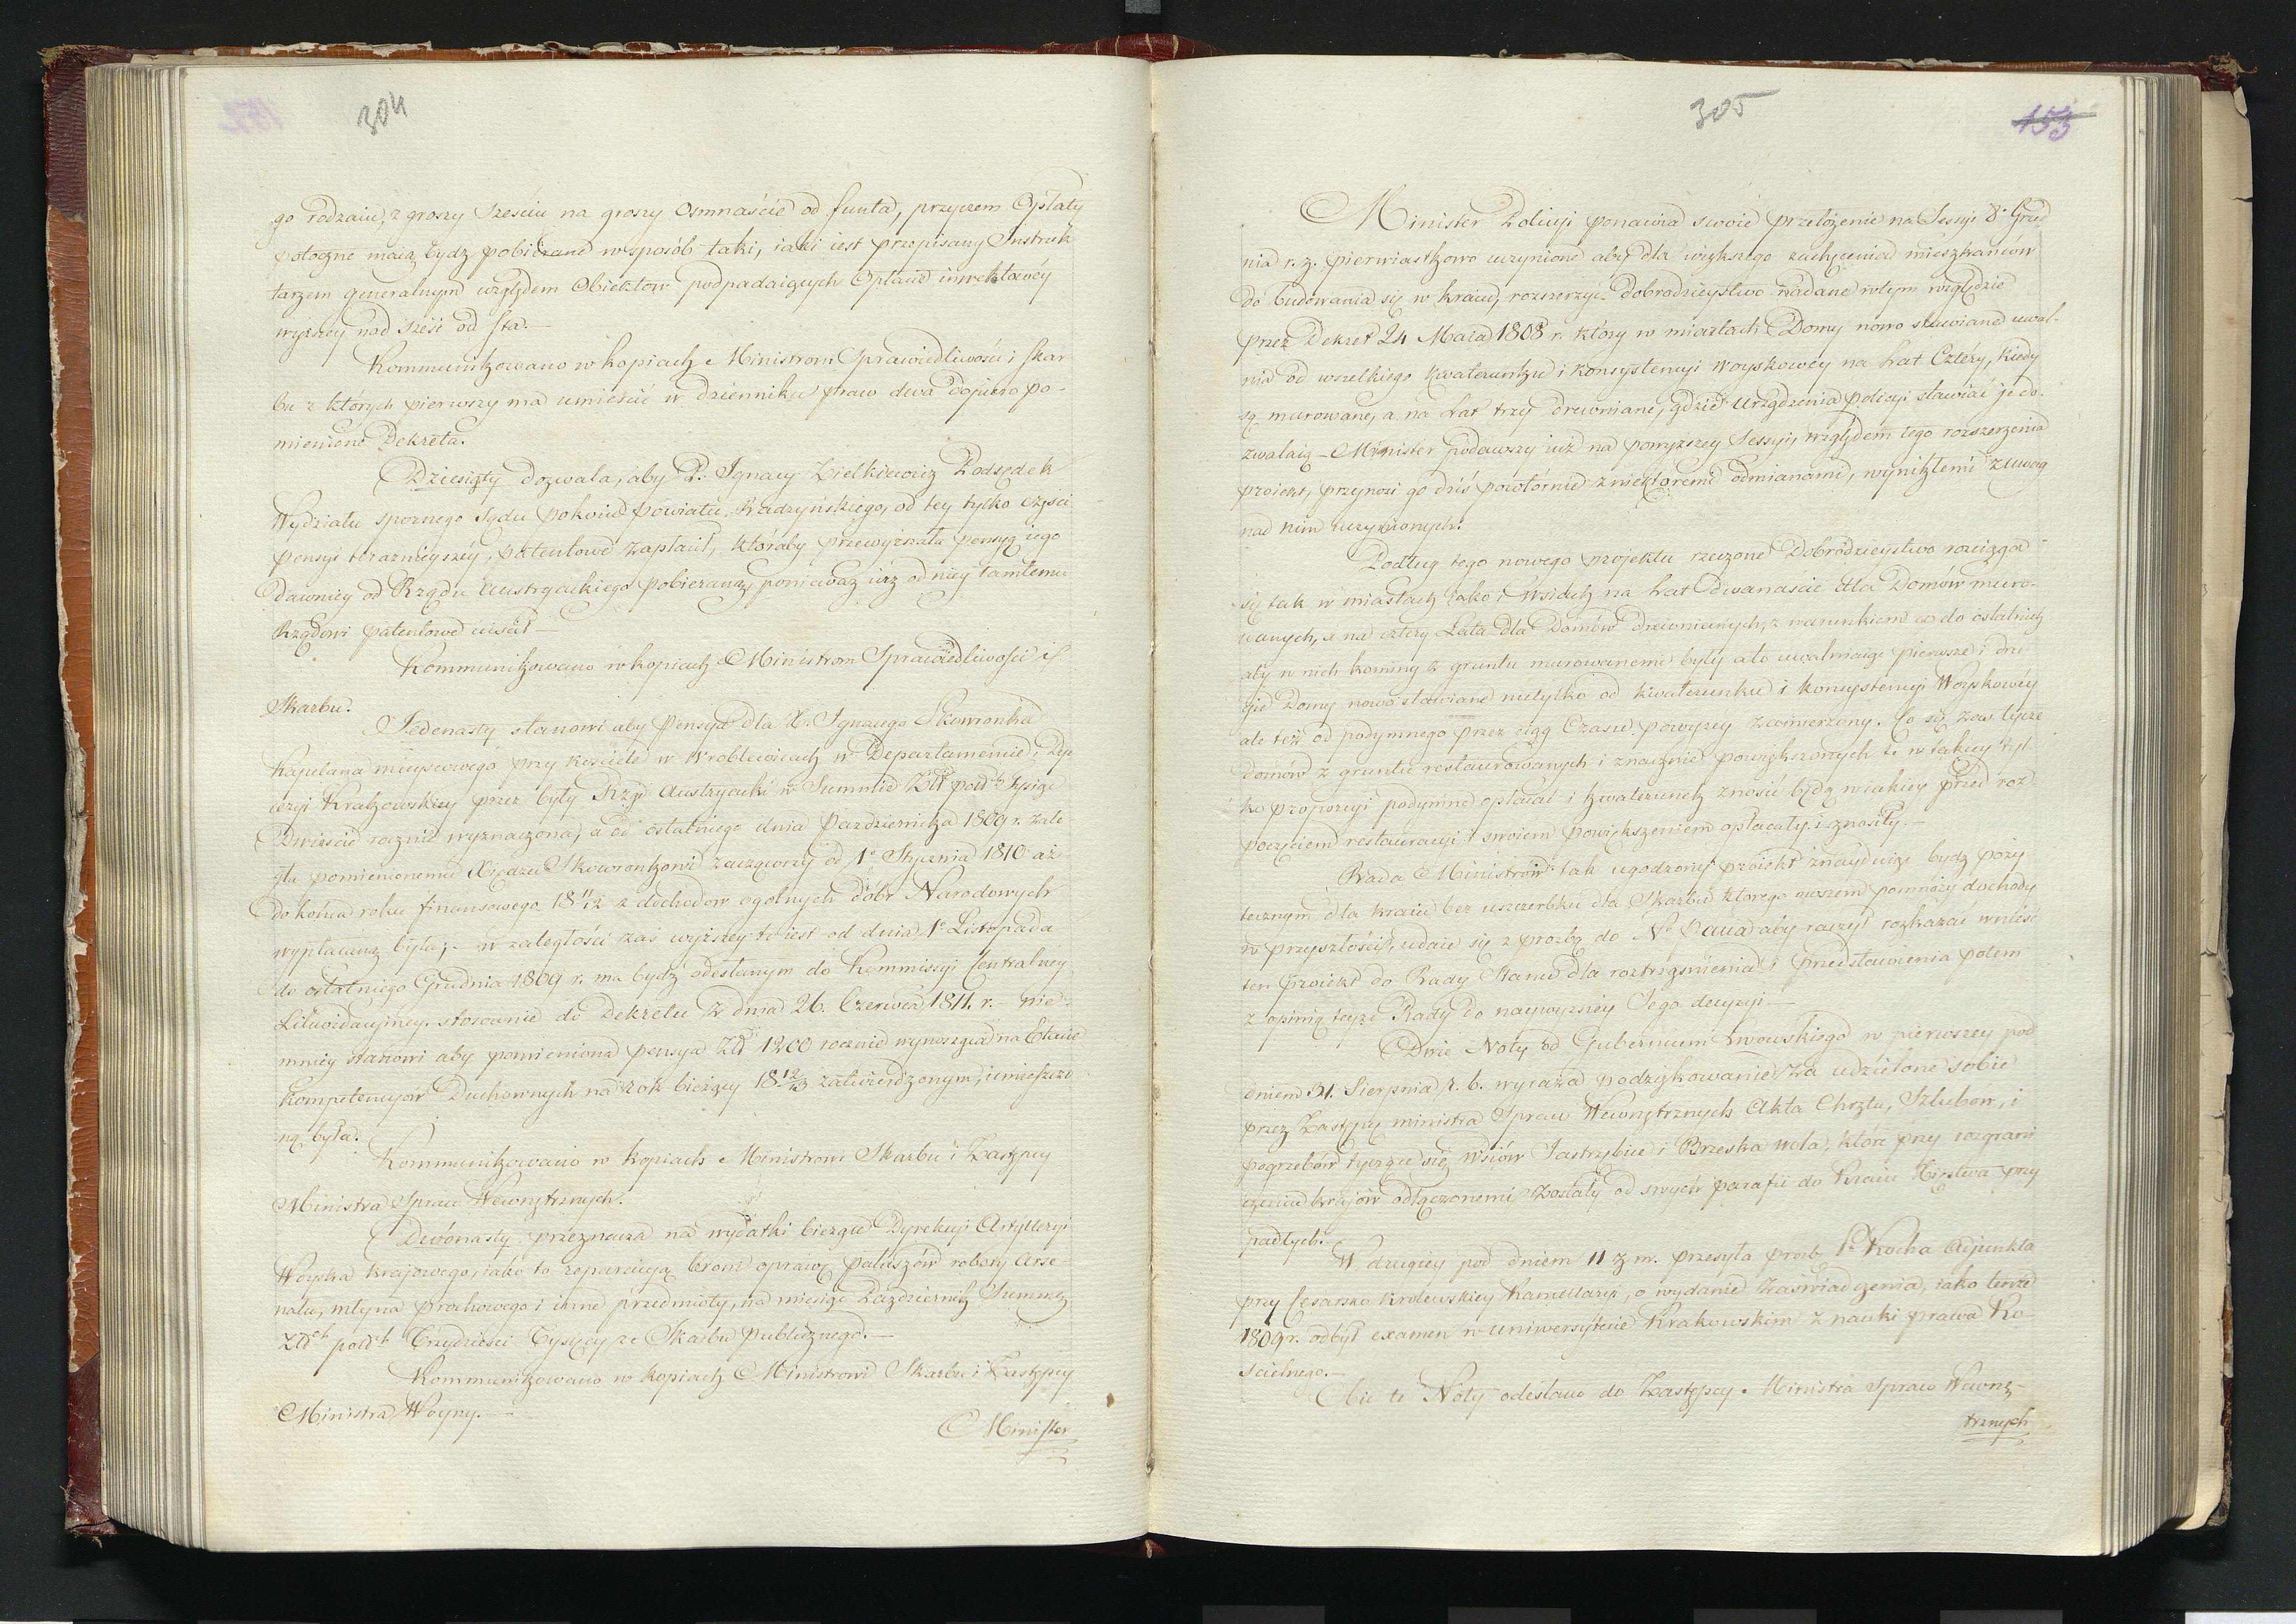 304
go rodzaiu, z groszy sześciu na groszy osmnaście od funta, przyczem Opłaty
potoczne maią bydz pobierane w sposób taki, iaki iest przepisany Instruk
tarzem generalnym względem Obiektow podpadaiących Opłacie inwektowéy
wyższey nad sześć od sta. —
Kommunikowano w kopiach Ministrom Sprawiedliwości i Skar-
bu z których pierwszy ma umieścić w dzienniku praw dwa dopiero po-
mienione Dekreta.
Dziesiąty dozwala, aby P. Ignacy Zielkiewicz Podsędek
Wydziału spornego Sądu pokoiu Powiatu Radzyńskiego, od tey tylko części
pensyi teraznieyszéy, patentowe zapłacił, któraby przewyższała pensyą iego
dawniey od Rządu Austryackiego pobieraną, ponieważ iuz od niey tamtemu
Rządowi patentowe uiścił —
Kommunikowano w kopiach Ministrom Sprawiedliwości i
Skarbu.
Jedenasty stanowi aby pensya dla X. Ignacego Skowronka
Kapelana mieyscowego przy kościele w Wroblewicach w Departamencie i Dye
cezyi Krakowskiey przez były Rząd Austryacki w Summie Złt pol.ch Tysiąc
Dwieście rocznie wyznaczona, a od ostatniego dnia Pazdziernika 1809 r. zale
gła pomienionemu Xiędzu Skowronkowi zacząwszy od 1o Stycznia 1810 aż
do końca roku finansowego 18 11/12 z dochodow ogolnych dóbr Narodowych
wypłacaną była; – w zaległości zaś wyższey to iest od dnia 1o Listopada
do ostatniego Grudnia 1809 r. ma bydź odesłanym do Kommissyi Centralney
Likwidacyiney. stosownie do Dekretu z dnia 26. Czerwca 1811. r. – nie-
mniey stanowi aby pomieniona pensya Złt 1200 rocznie wynosząca na Etacie
kompetencyów Duchownych na rok bieżący 18 12/13 zatwierdzonym, umieszczo
ną była.
Kommunikowano w kopiach Ministrowi Skarbu i Zastępcy
Ministra Spraw Wewnętrznych.
Dwónasty przeznacza na wydatki bieżące Dyrekcyi Artylleryi
Woyska kraiowego, iako to reparacyą broni oprawę pałaszów roboty Arse-
nału, młyna prochowego i inne przedmioty, na miesiąc Pazdziernik Summę
Złtch polch Trzydzieści Tysięcy ze Skarbu Publicznego. —
Kommunikowano w kopiach Ministrowi Skarbu i Zastępcy
Ministra Woyny. —
Minister
305
153
Minister Policyi ponawia swoie przełożenie na Sessyi 8o Grud
nia r. z. pierwiastkowo uczynione aby dla większego zachęcenia mieszkańców
do budowania się w kraiu, rozszerzyć dobrodzieystwo nadane w tym względzie
przez Dekret 24 Maia 1808 r. który w miastach Domy nowo stawiane uwal-
nia od wszelkiego kwaterunku i konsystencyi woyskowéy na Lat Cztéry, kiedy
są murowane, a na Lat trzy drewniane, gdzie Urządzenia policyi stawiać je do-
zwalaią – Minister podawszy iuż na powyższey Sessyi, względem tego rozszerzenia
proiekt, przynosi go dziś powtórnie z niektóremi odmianami, wynikłemi z uwag
nad nim uczynionych.
Podług tego nowego projektu rzeczone Dobrodzieystwo rozciąga
się tak w miastach jako i wsiach na Lat dwanaście dla Domów muro-
wanych, a na cztery Lata dla Domów drewnianych, z warunkiem co do ostatnich
aby w nich kominy z gruntu murowanemi były a to uwalniaiąc pierwsze i dru
gie Domy nowo stawiane nietylko od kwaterunku i konsystencyi Woyskowéy
ale też od podymnego przez ciąg Czasu powyżey zamierzony. Co się zaś tycze
domów z gruntu restaurowanych i znacznie powiększonych te w takiey tyl-
ko proporcyi podymne opłacać i kwaterunek znosić będą w iakiey przed roz
poczęciem restauracyi i swoiem powiększeniem opłacały i znosiły. —
Rada Ministrów tak ugodzony proiekt znayduiąc bydz poży
tecznym dla kraiu bez uszczerbku dla Skarbu ktorego owszem pomnoży dochody
w przyszłości, udaie się z prozbą do No Pana aby raczył rozkazać wnieść
ten proiekt do Rady Stanu dla roztrząśnienia i przedstawienia potem
z opinią teyże Rady do naywyższey Jego decyzyi —
Dwie Noty od Gubernium Lwowskiego w pierwszey pod
dniem 31. Sierpnia r. b. wyraża podziękowanie za udzielone sobie
przez Zastępcę ministra Spraw Wewnętrznych Akta Chrztu, Szlubów, i
pogrzebów tyczące się Wsiów Jastrzębice i Brzeska wola, które przy rozgrani
czeniu krajów odłączonemi zostały od swych parafii do Kraiu Xięstwa przy
padłych. —
W drugiey pod dniem 11 z. m. przesyła prośb. Po Kocha Adjunkta
przy Cesarsko Krolewskiey Kamellaryi, o wydanie zaświadczenia, iako tenże
1809 r. odbył examen w Uniwersytecie Krakowskim z nauki prawa Ko-
ścielnego. —
Obie te Noty odesłano do Zastępcy Ministra Spraw Wewnę-
trznych